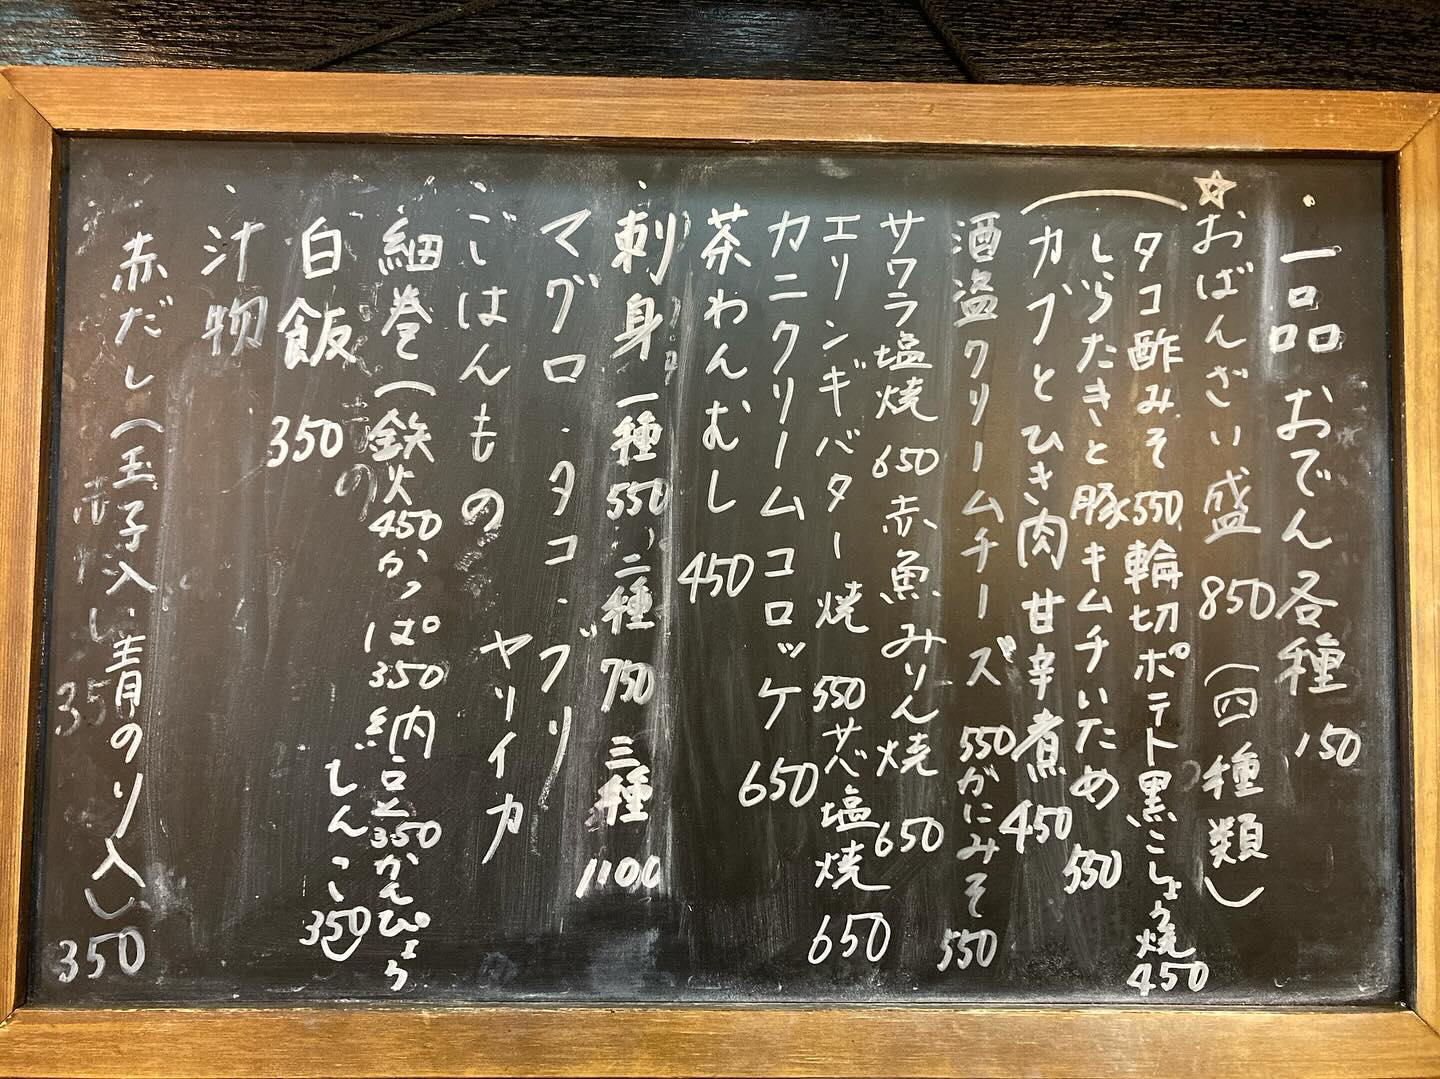 ・一品 おでん各種 150
☆おばんざい盛 850 (四種類)
タコ酢みそ 550 輪切ポテト黒こしょう焼 450
しらたきと豚キムチいため 550
カブとひき肉甘辛煮 450
酒盗クリームチーズ 550 かにみそ 550
サワラ塩焼 650 赤魚みりん焼 650
エリンギバター焼 550 サバ塩焼 650
カニクリームコロッケ 650
茶わんむし 450
・刺身 一種 550 二種 750 三種 1100
マグロ・タコ・ブリ
ヤリイカ
・ごはんもの
細巻(鉄火 450 かっぱ 350 納豆 350 かんぴょう
しんこ 350)
・白飯 350
・汁物
赤だし(玉子入い 青のり入) 350